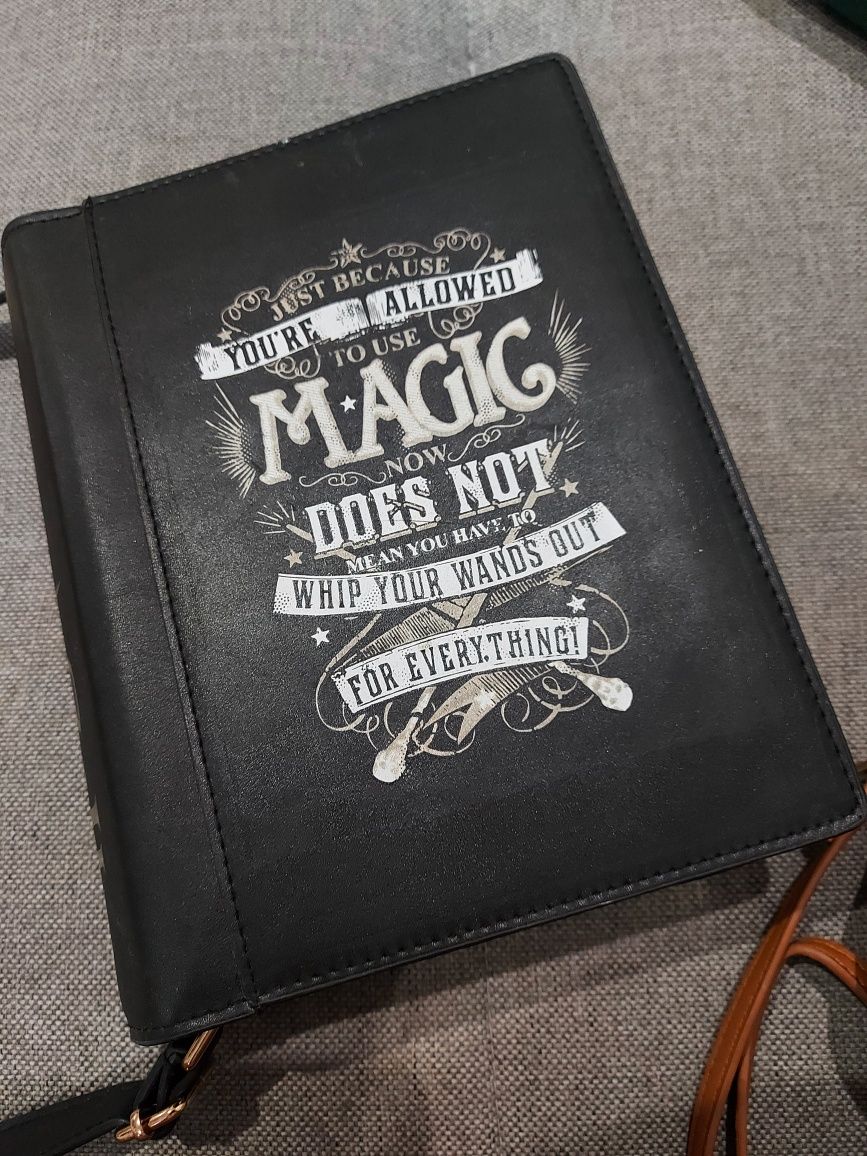 JUST BECAUSE
YOU'RE ALLOWED
TO USE
MAGIC
NOW
DOES NOT
MEAN YOU HAVE TO
WHIP YOUR WANDS OUT
FOR EVERYTHING!